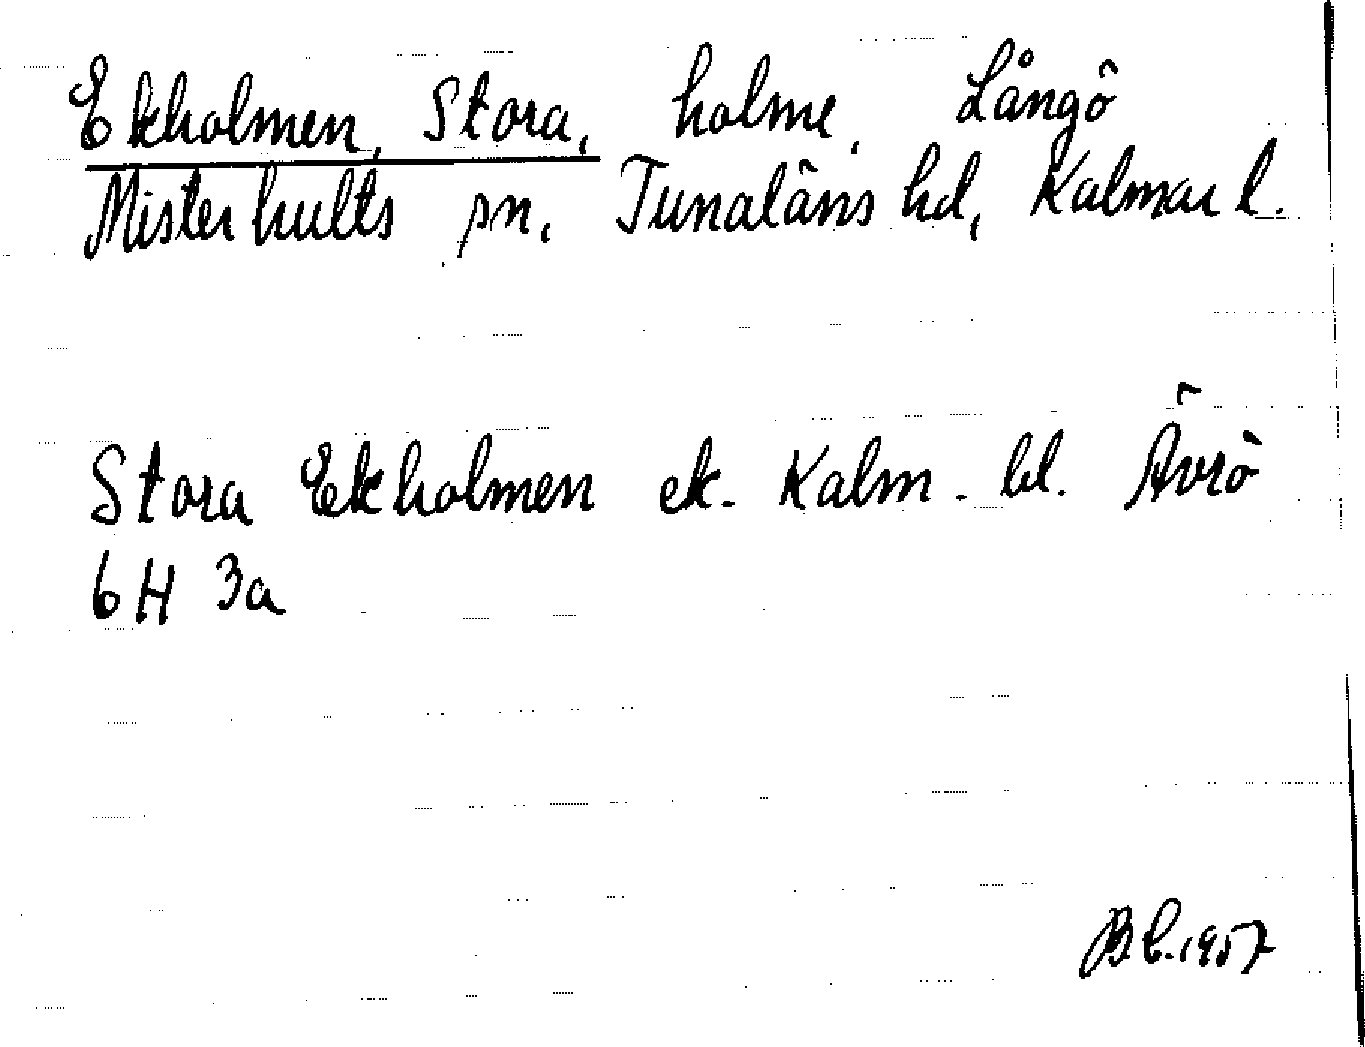 Ekholmen, Stora, holme, Långö
Misterhults sn, Tunaläns hd, Kalmar l.
Stora Ekholmen ek. Kalm. bl. Ävrö
6H 3a
1957